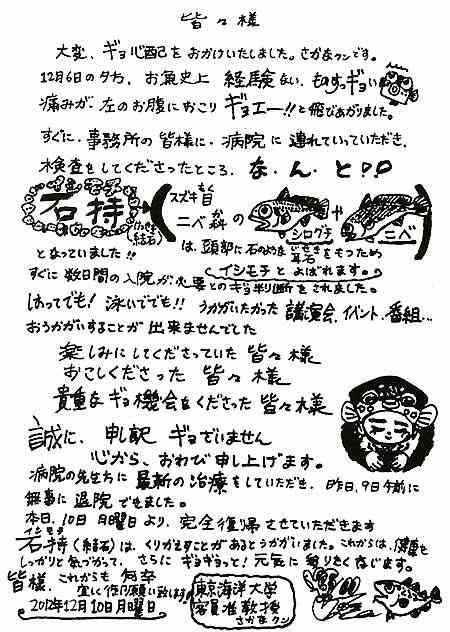 皆々様
大変、ギョ心配をおかけいたしました。さかなクンです。
12月6日の夕方、お魚史上 経験ない、ものすっギョい
痛みが、左のお腹におこり ギョエー!!と飛びあがりました。
すぐに、事務所の皆様に、病院に連れていっていただき、
検査をしてくださったところ、な・ん・と??
石持(けっせき 結石)
スズキ目
ニベ科の シログチ や ニベ
は、頭部に石のような耳石をもつため
イシモチとよばれます。
となっていました!!
すぐに数日間の入院が必要とのギョ判断をされました。
はってでも!泳いででも!!うかがいたかった 講演会、イベント、番組…
おうかがいすることが出来ませんでした
楽しみにしてくださっていた皆々様
おこしくださった 皆々様
貴重なギョ機会をくださった皆々様
誠に、申し訳ギョざいません
心から、おわび申し上げます。
病院の先生方に最新の治療をしていただき、昨日、9日午前に
無事に退院できました。
本日、10日 月曜日より、完全復帰させていただきます
石持(結石)は、くりかえすことがあるとうかがいました。これからは、健康を
しっかりと気づかって、さらにギョギョっと!元気に
皆様、これからも何卒
宜しく御願い致します
2012年12月10日月曜日
東京海洋大学
客員准教授
さかなクン